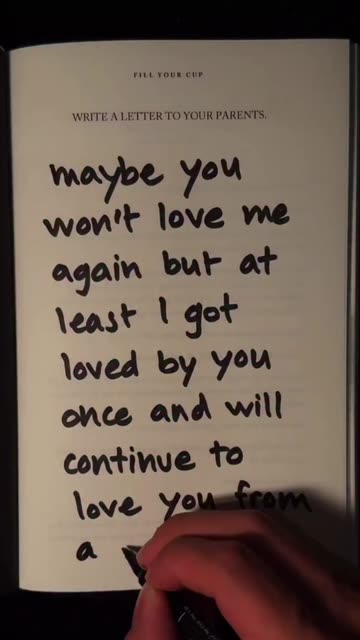 FILL YOUR CUP
WRITE A LETTER TO YOUR PARENTS.
maybe you
won't love me
again but at
least I got
loved by you
once and will
continue to
love you from
a